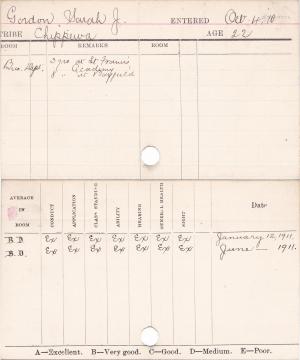 Gordon, Sarah J. ENTERED Oct 4, '10
TRIBE Chippewa AGE 22
ROOM REMARKS ROOM
Bus. Dept. 3 yrs at St Francis
Academy
" at Bayfield
AVERAGE IN ROOM CONDUCT APPLICATION CLASS STANDING ABILITY HEARING GENERAL HEALTH SIGHT Date
B.D. Ex Ex Ex Ex Ex Ex Ex January 12, 1911
B.D. Ex Ex Ex Ex Ex Ex Ex June — 1911.
A—Excellent. B—Very good. C—Good. D—Medium. E—Poor.